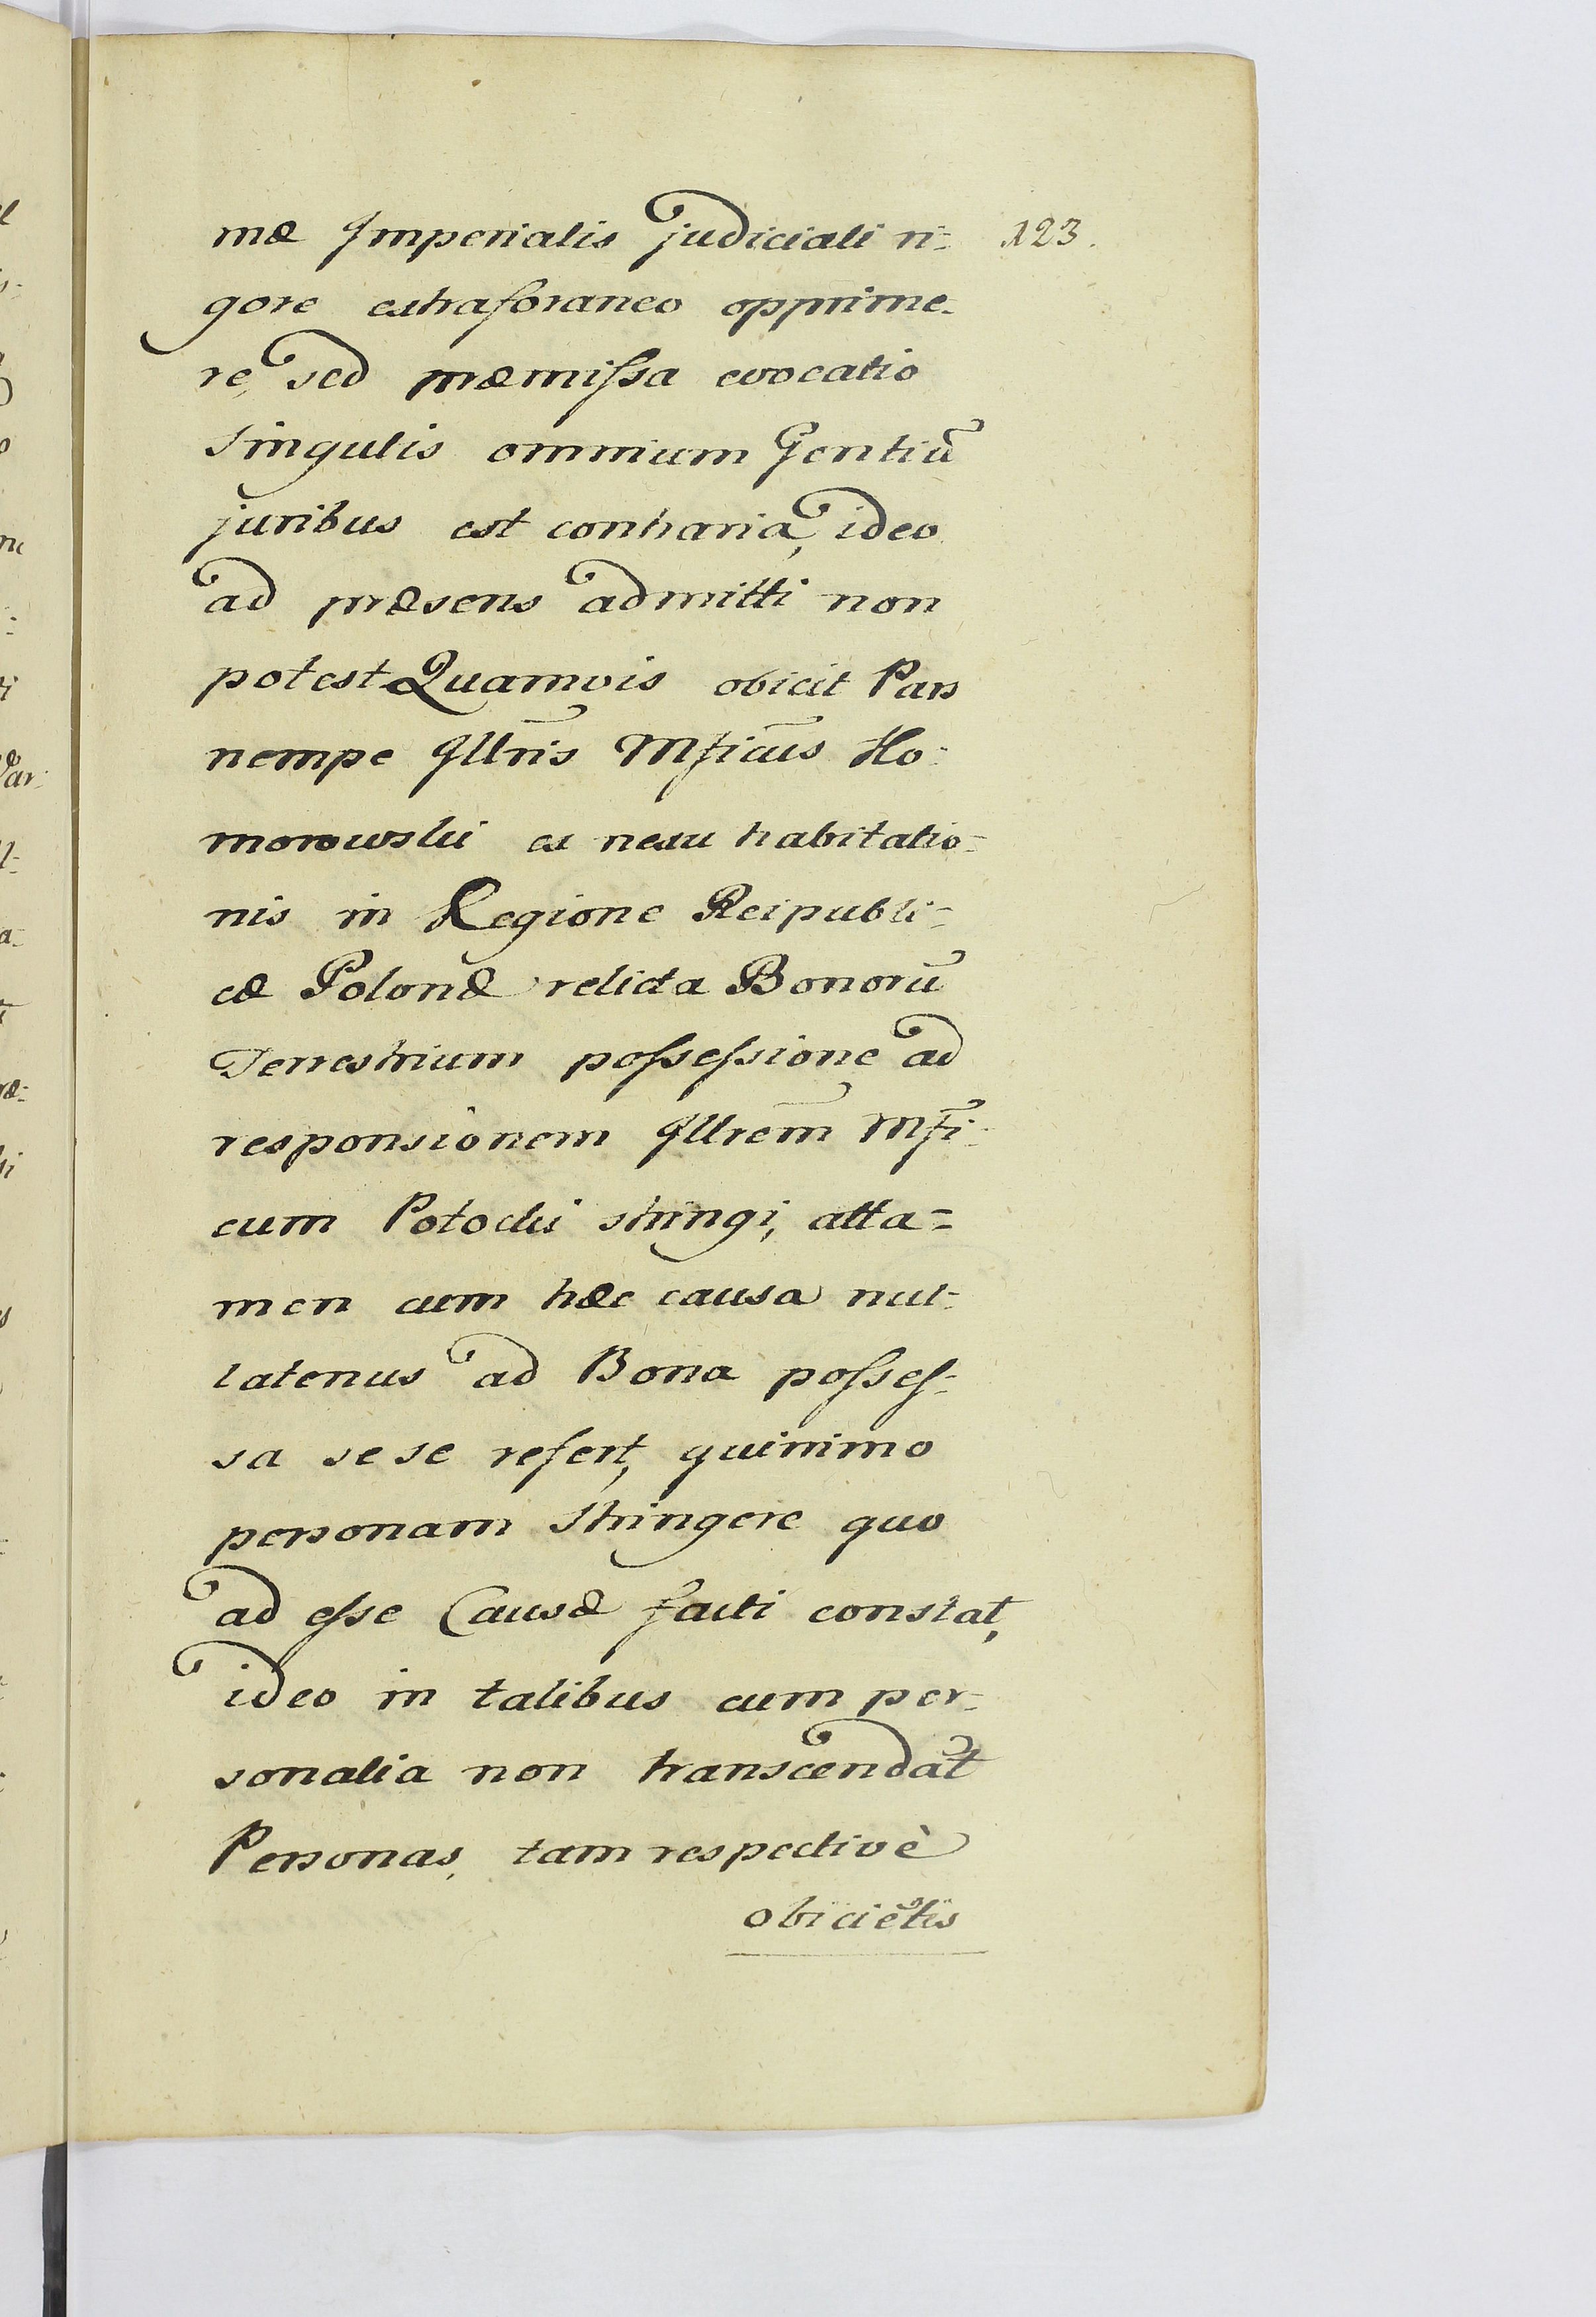 mæ Imperialis judiciali ri- 123.
gore extraforaneo opprime-
re, sed præmissa evocatio
singulis omnium Gentiū
juribus est contraria, ideo
ad præsens admitti non
potest Quamvis obicit Pars
nempe Illr̄is Mfic̄us Ko-
morowski ex nexu habitatio-
nis in Regione Reipubli-
cæ Polonæ relicta Bonorū
Terrestrium possessione ad
responsionem Illrēm Mfi-
cum Potocki stringi, atta-
men cum hæc causa nul-
latenus ad Bona posses-
sa sese refert, quinimo
personam stringere quo
ad esse Causæ facti constat,
ideo in talibus cum per-
sonalia non transcendāt
Personas, tam respectivè
obiciētis